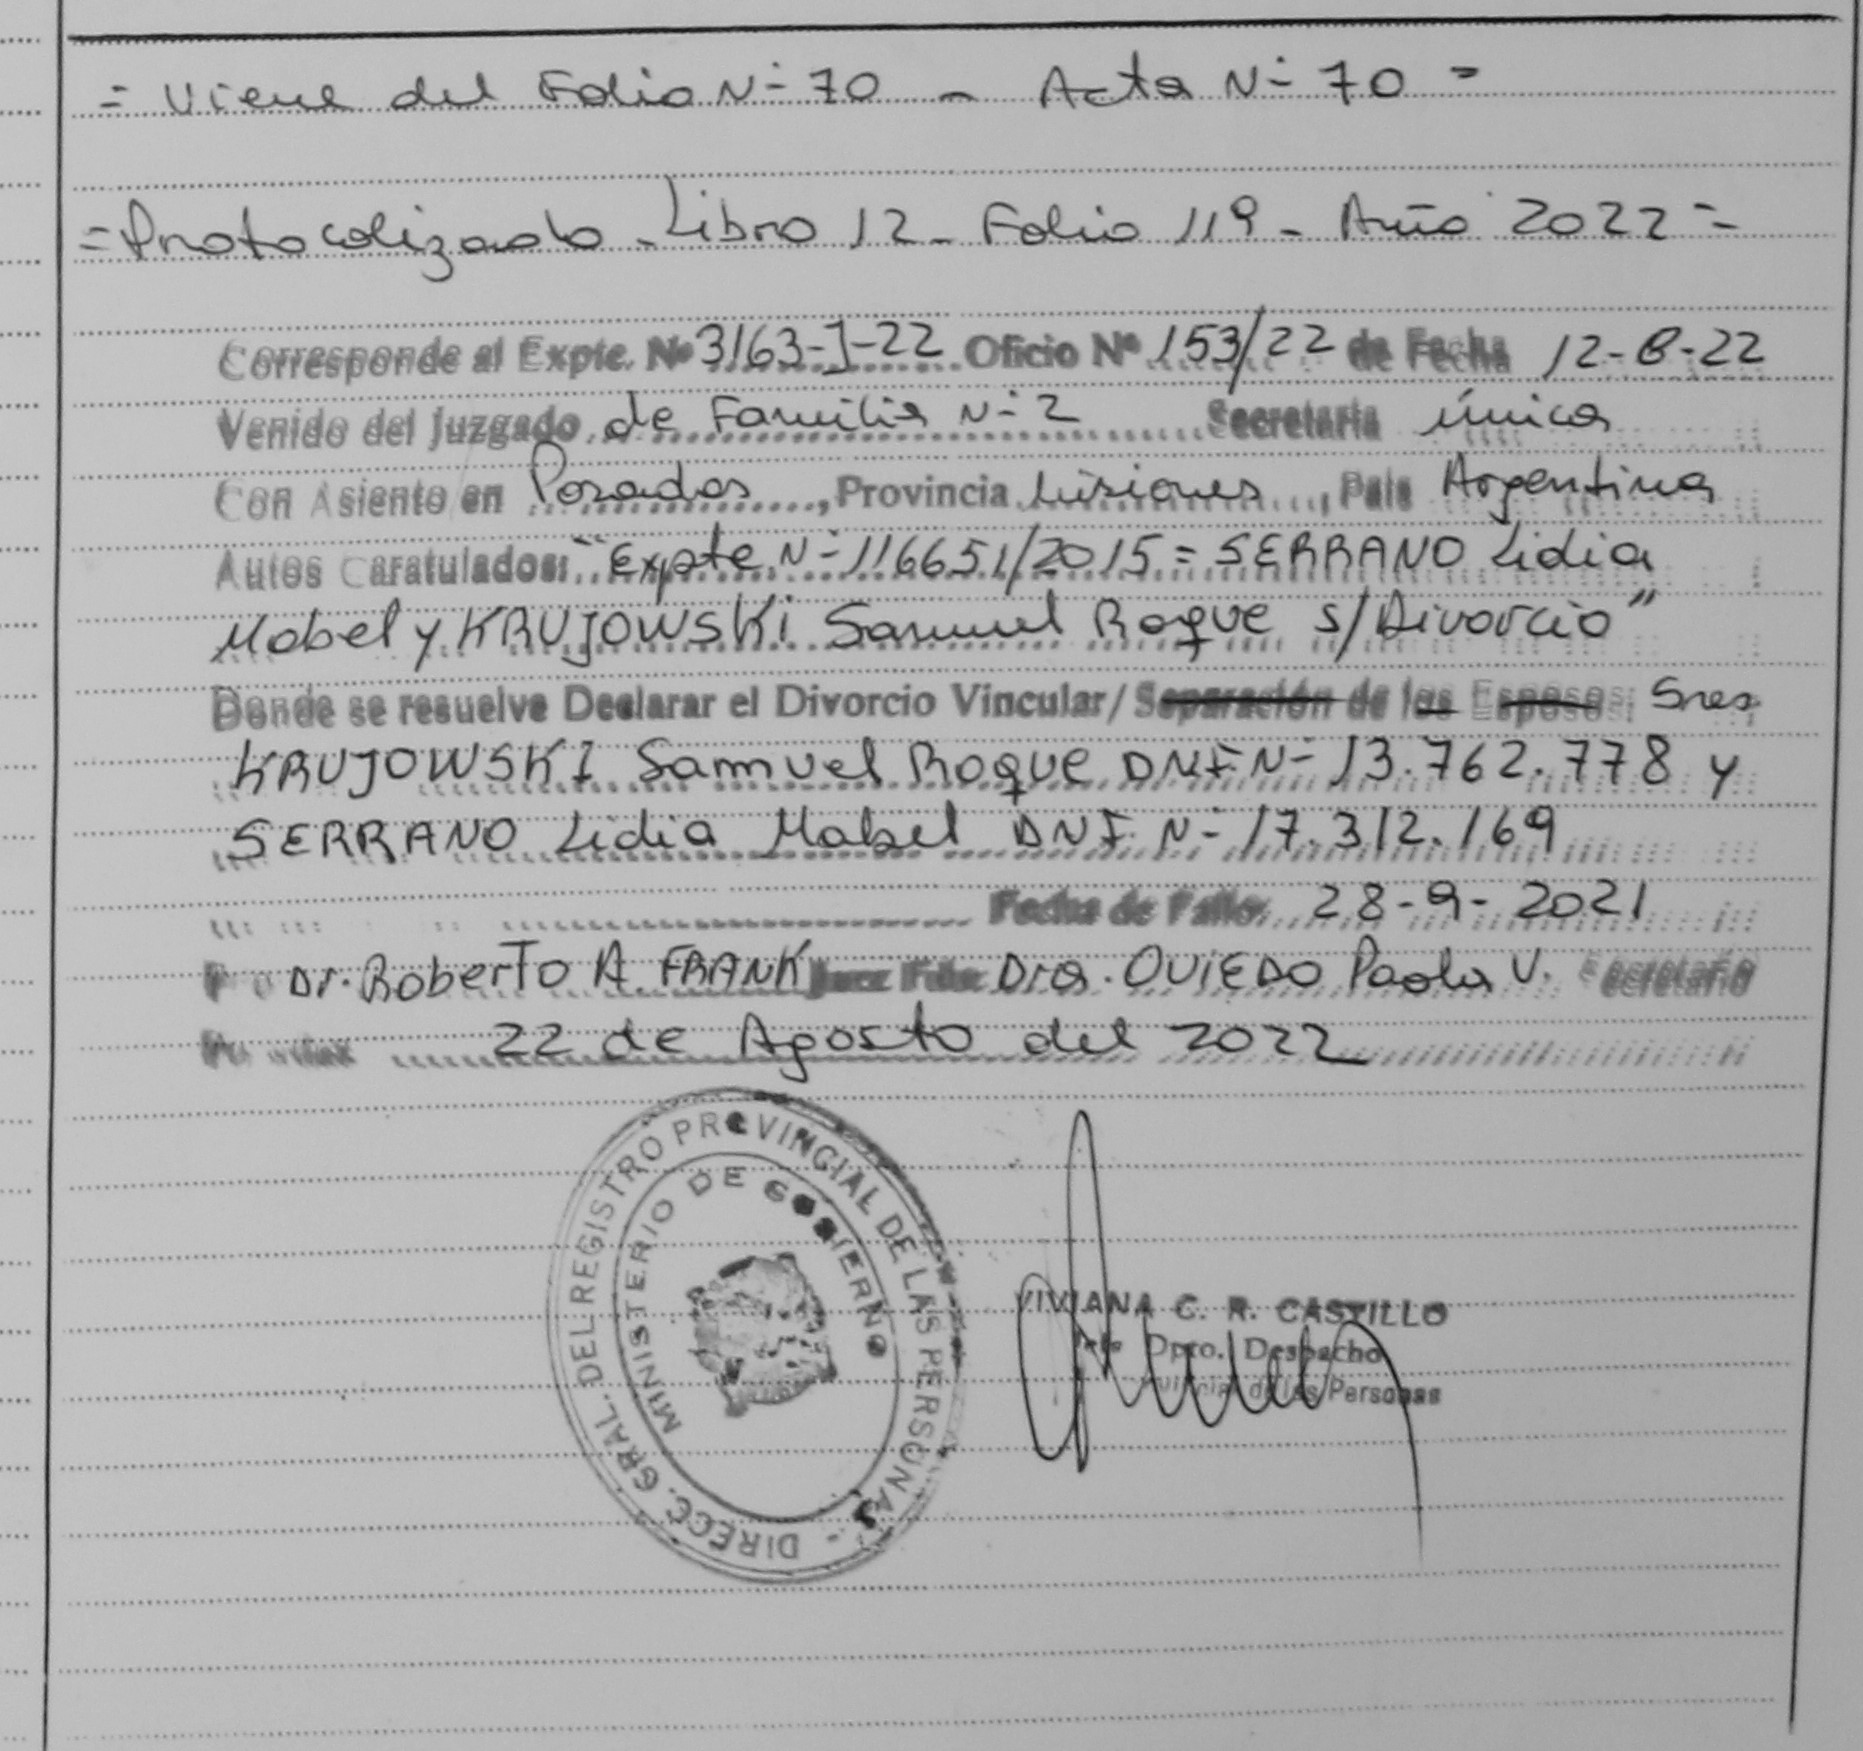 = Viene del Folio N- 70 - Acta N- 70 =
= Protocolizado - Libro 12 - Folio 119 - Año 2022 =
Corresponde al Expte. Nº 3163-J-22 Oficio Nº 153/22 de Fecha 12-8-22
Venido del Juzgado de Familia N- 2 Secretaria única
Con Asiento en Posadas, Provincia Misiones, Pais Argentina
Autos Caratulados: "Expte N- 116651/2015 = SERRANO Lidia
Mabel y KRUJOWSKi Samuel Roque s/Divorcio"
Donde se resuelve Declarar el Divorcio Vincular/Separación de los Esposos: Sres
KRUJOWSKI Samuel Roque DNI N- 13.762.778 y
SERRANO Lidia Mabel DNI N- 17.312.169
Fecha de Fallo: 28-9-2021
Dr. Roberto A. FRANK Juez Fdo: Dra. OVIEDO Paola V. Secretario
22 de Agosto del 2022
DIRECC. GRAL. DEL REGISTRO PROVINCIAL DE LAS PERSONAS -
MINISTERIO DE GOBIERNO
VIVIANA C. R. CASTILLO
Jefe Dpto. Despacho
de las Personas